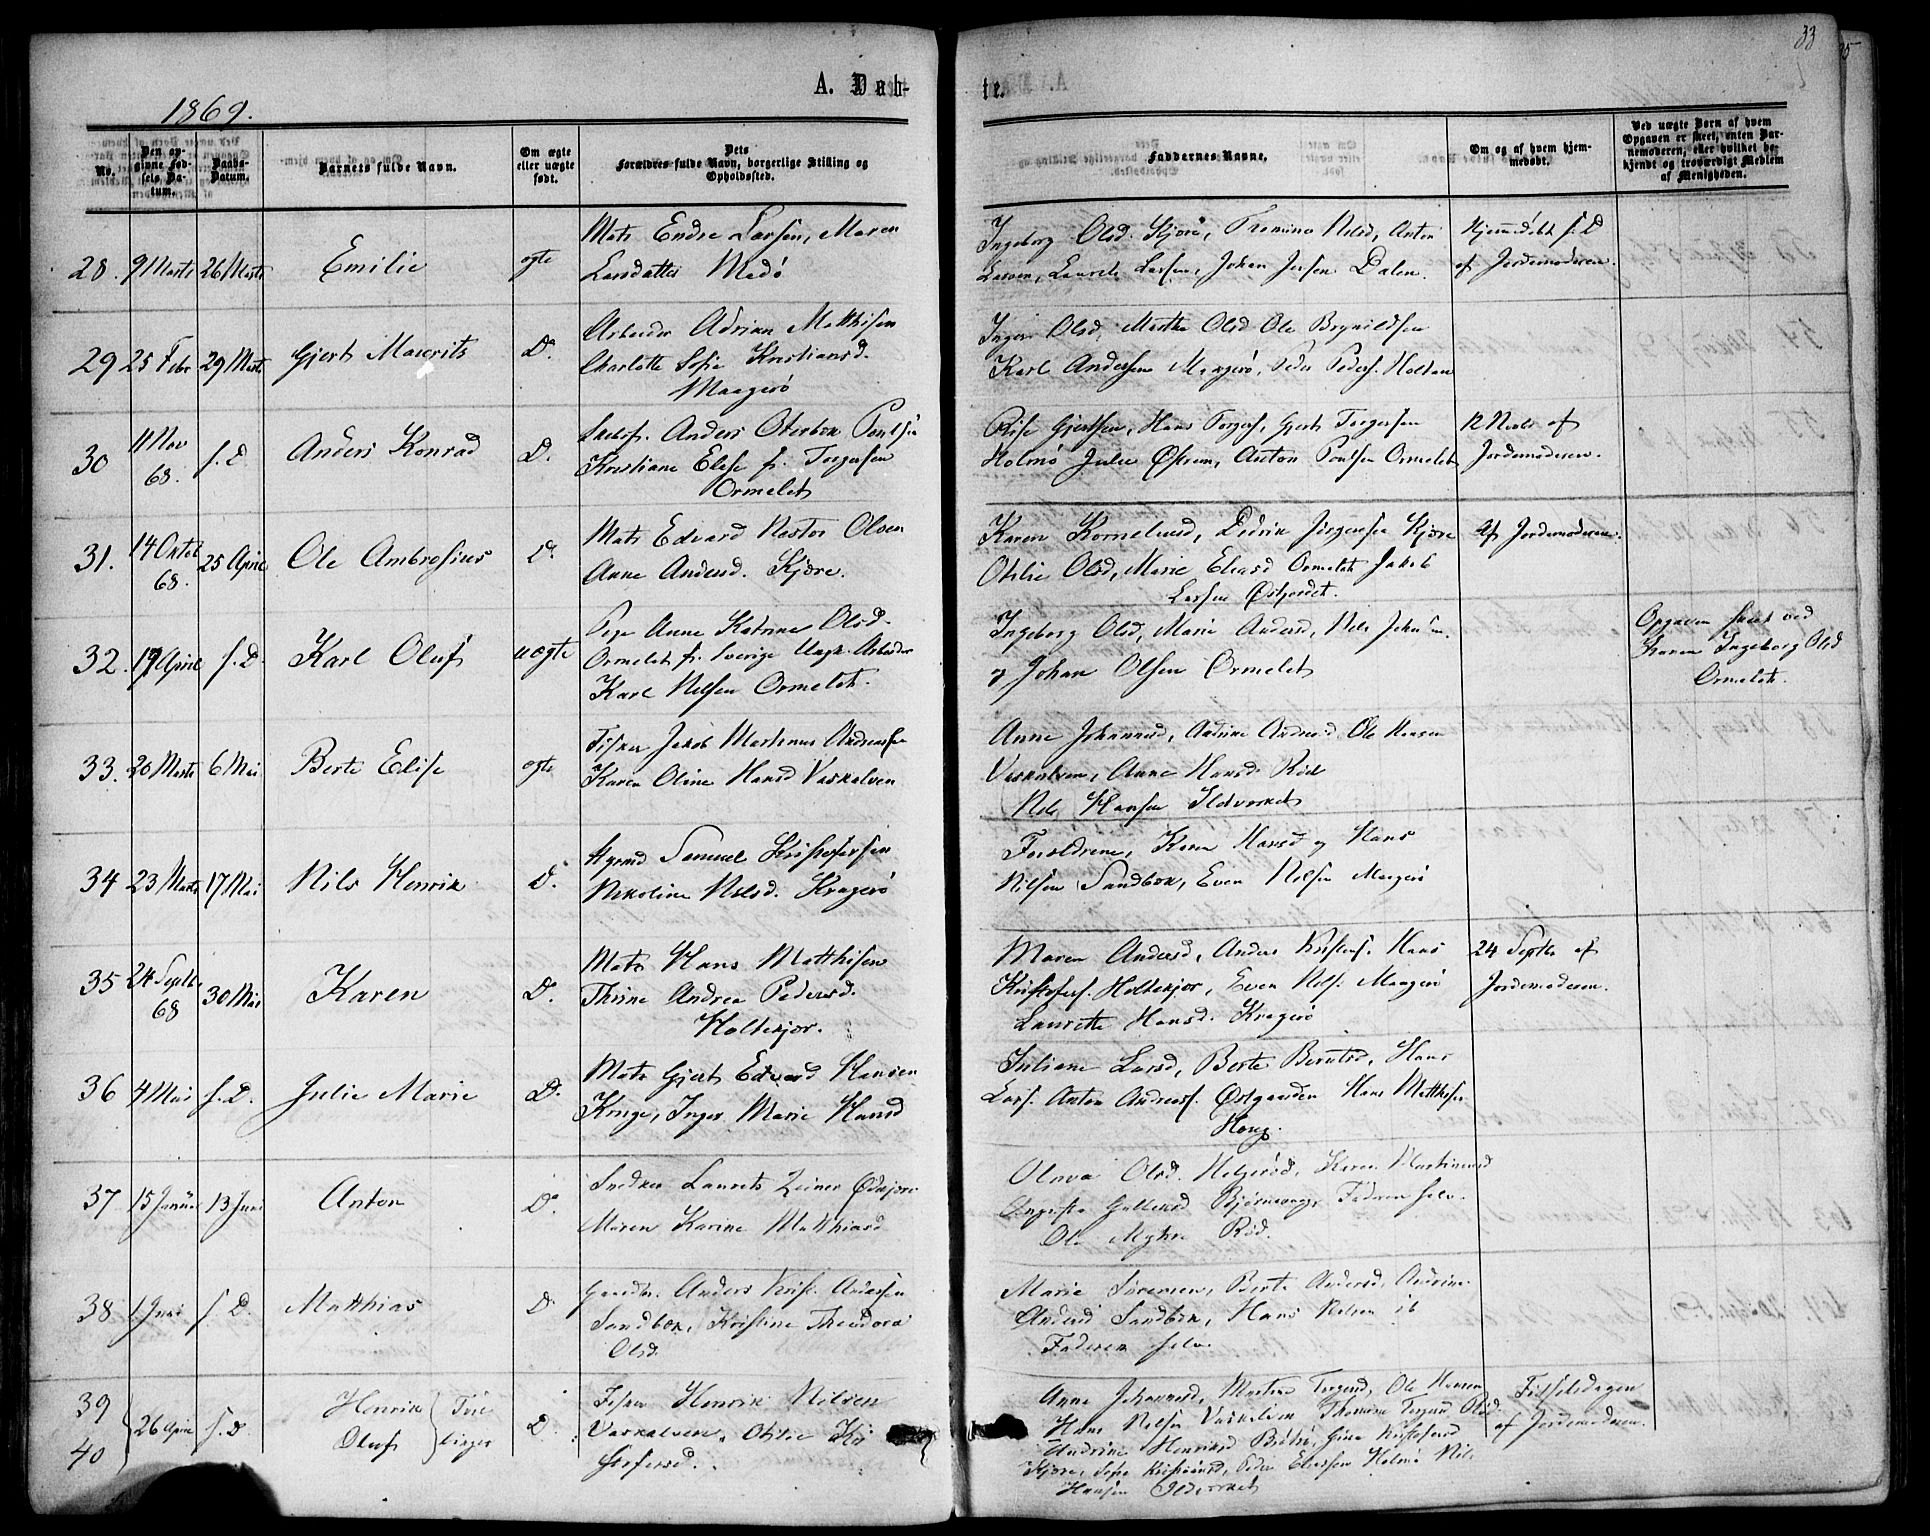 33
35
A. Døb-
te.
1869.
No.
Den opgivne Fødsels-Datum.
Daabs-Datum.
Barnets fulde Navn.
Om ægte eller uægte født.
Dets Forældres fulde Navn, borgerlige Stilling og Opholdssted.
Faddernes Navne.
Om og af hvem hjemmedøbt.
Ved uægte Børn af hvem Opgaven er skeet, enten Barnemoderen, eller hvilket bekjendt og troværdigt Medlem af Menigheden.
28. 9 Marts 26 Marts Emilie ægte
Mats Endre Larsen, Maren
Larsdatter Medø
Ingeborg Olsd. Kjøre, Nilsd, Anton
Larsen, Laurits Larsen, Johan Jensen Dalen.
Hjemmedøbt s. D
af Jordemoderen.
29 25 Febr 29 Marts Gjert Mauritz D.
Arbeider Adrian Matthisen
Charlotte Sofie Kristiansd.
Maagerø
Inger Olsd, Marthe Olsd Ole Brynildsen
Karl Andersen Maagerø, Peder Peders. Holtan
30 11 Nov 68. s. D. Anders Konrad D.
Anders Oterbæk Poulsen
Kristiane Elise f. Torgersen
Ormelet
Gjertsen, Hans Torgers, Gjert Torgersen
Holmø Julie Østrem, Anton Poulsen Ormelet
12 af
Jordemoderen.
31. 14 Oktob 68. 25 April Ole Ambrosius D.
Mats Edvard Nestor Olsen
Anne Andersd. Kjøre.
Karen Korneliusd, Didrik Jørgensen Kjøre
Otilie Olsd, Marie Eliasd Ormelet Jakob
Larsen Østjordet.
Af Jordemoderen.
32. 19 April s. D. Karl Oluf uægte
Pige Anne Katrine Olsd.
Ormelet fr. Sverige Ungk. Arbeider
Karl Nilsen Ormelet.
Ingeborg Olsd, Marie Andersd, Nils Johnsen.
og Johan Olsen Ormelet
Opgaven skeet ved
Karen Ingeborg Olsd
Ormelet.
33. 20 Marts 6 Mai Berte Elise ægte
Fisker Jakob Martinus Andreassen
Karen Oline Hansd Vaskalven
Anne Johannesd, Andrine Andersd Ole Hansen
Vaskalven, Anne Hansd. Röd
Nils Hansen Ildverket
34 23 Marts 17 Mai Nils Henrik D.
Styrmd Samuel Kristofersen
Nikoline Nilsd. Kragerø
Forældrene, Karen Hansd og Hans
Nilsen Sandbæk, Even Nilsen Maagerø
35 24 Septb. 68 30 Mai Karen D.
Mats Hans Matthisen
Thrine Andrea Pedersd.
Holtekjær.
Maren Andersd, Anders Kristens. Hans
Kristofers. Holtekjær, Even Nils. Maagerø
Laurette Hansd. Kragerø
24 Septb. af
Jordemoderen.
36 4 Mai s. D. Julie Marie D.
Mats Gjert Edvard Hansen
Kruge, Inger Marie Hansd
Juliane Larsd, Berte Berntsd, Hans
Lars. Anton Andreass. Østgaarden Hans Matthisen
Houg.
37 15 Januar 13 Juni Anton D.
Snedker Laurits Zeiner Ødekjær
Maren Karine Matthiasd
Olava Olsd. Helgerød, Karen Martinusd
Bjørnevaage, Faderen selv.
Ole Myhre Röd.
38 1 Juni s. D. Matthias D
Gaardbr. Anders Krist. Andersen
Sandbæk, Kristine Theodora
Olsd.
Marie Sørensen, Berte Andersd, Andrine
Andersd Sandbæk, Hans Nilsen ib
Faderen selv.
39
40 26 April s. D Henrik
Oluf Tvillinger D.
Fisker Henrik Nilsen
Vaskalven, Otilie Kri
stofersd.
Anne Johannesd, Martine Torgersd, Ole Hansen
Hans Nilsen Vaskalven Thomine Torgersd Röd.
Andrine Henriksd Brötsö, Gina Kristofersd
Kjøre, Sofie Kristiansd, Peder Eliassen Holmø Nils
Hansen Ildverket
Fødselsdagen
af Jordemoderen.